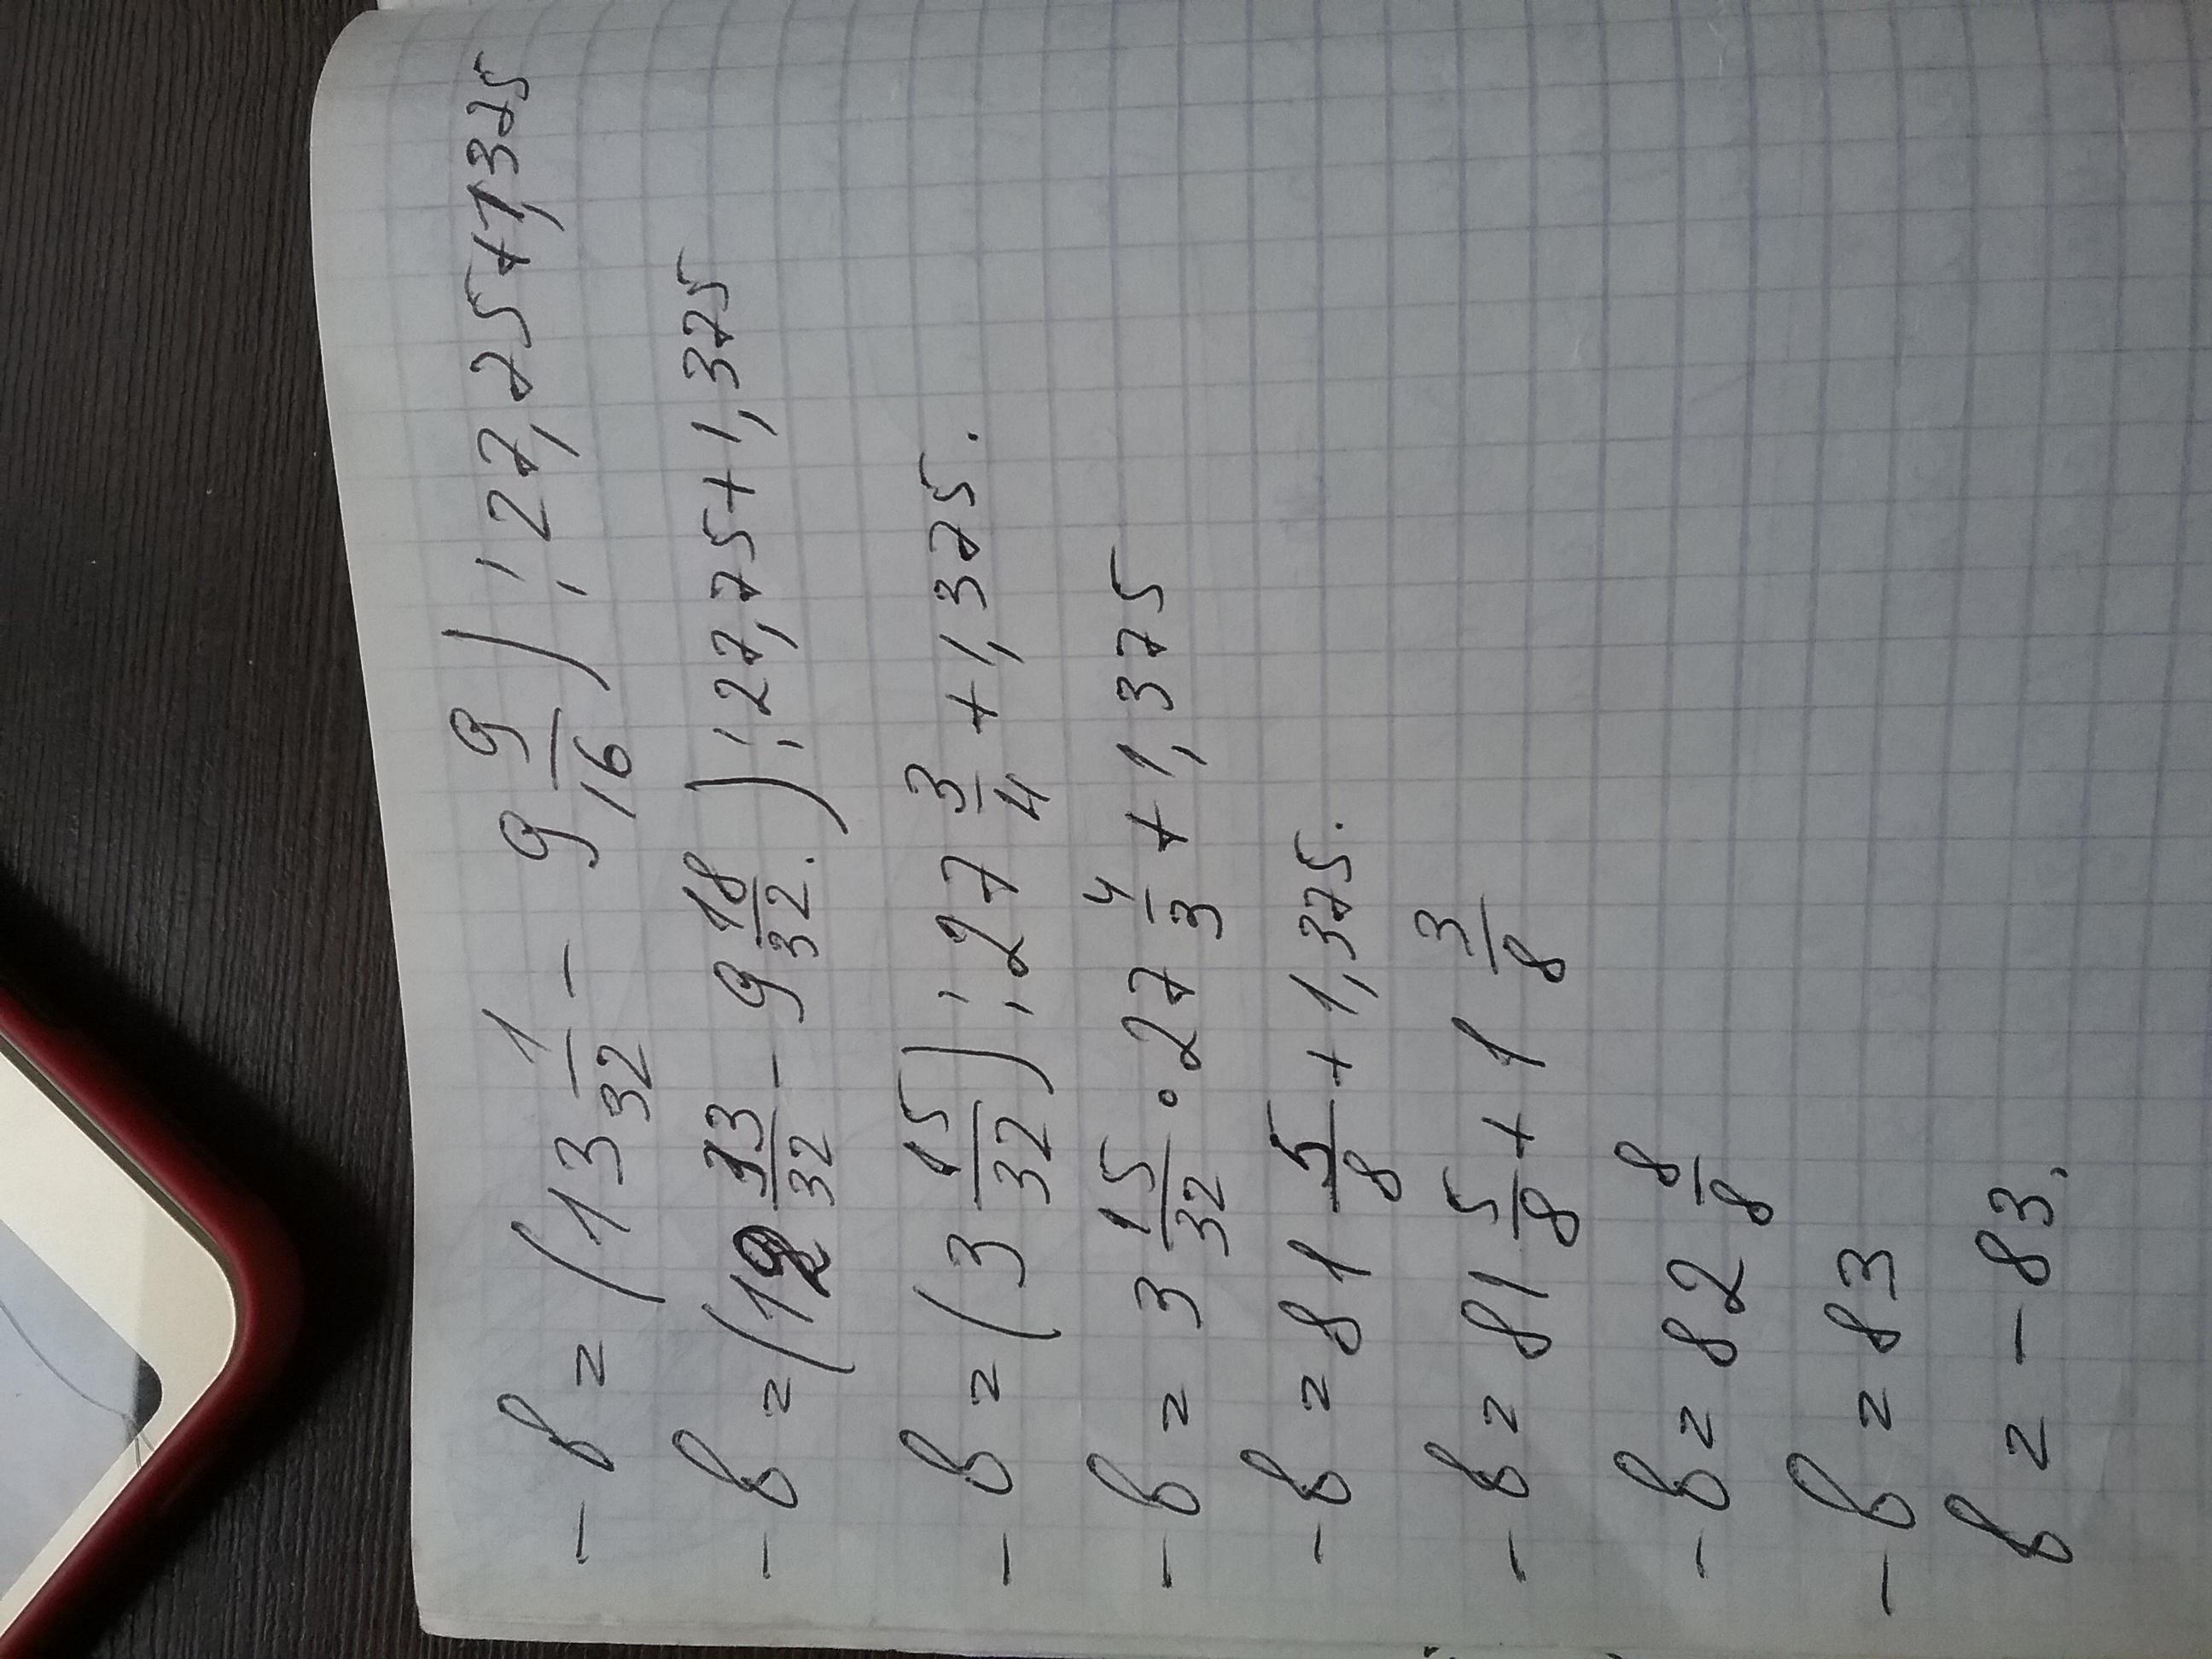 - b = (13 1/32 - 9 9/16) : 27,75 + 1,375
- b = (12 33/32 - 9 18/32) : 27,75 + 1,375
- b = (3 15/32) : 27 3/4 + 1,375.
- b = 3 15/32 · 27 4/3 + 1,375
- b = 81 5/8 + 1,375.
- b = 81 5/8 + 1 3/8
- b = 82 8/8
- b = 83
b = - 83.